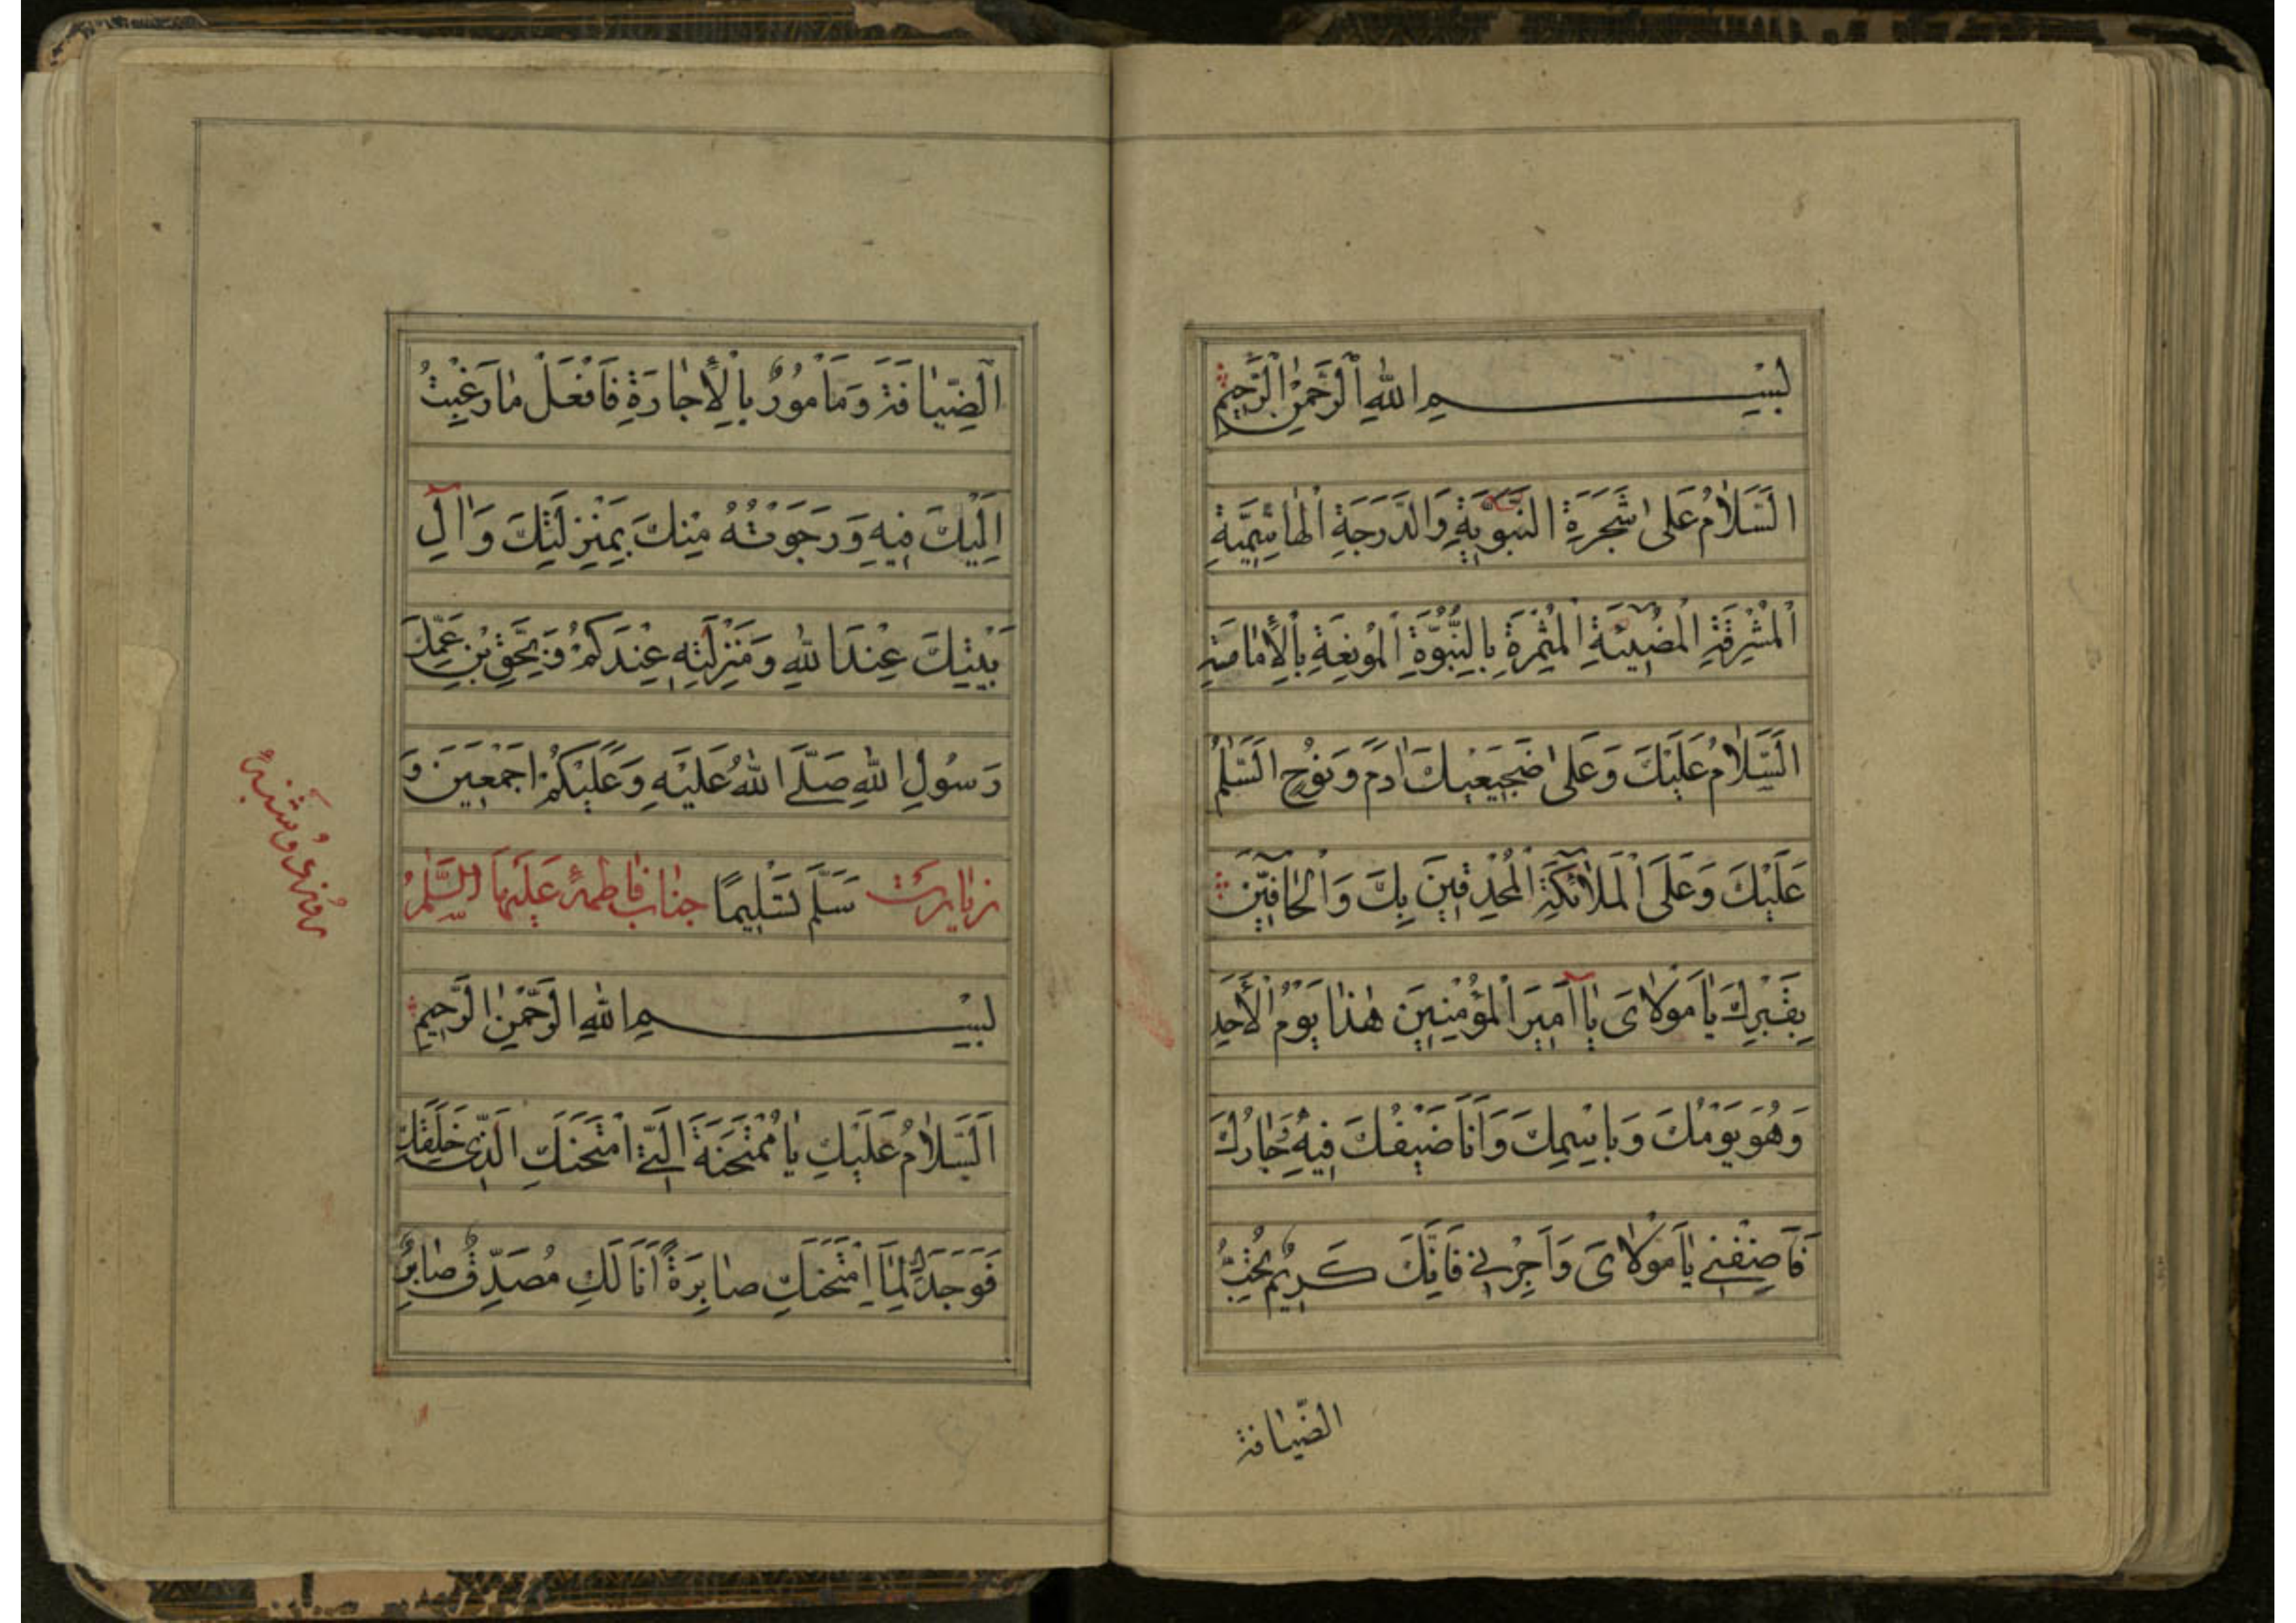 بِسْمِ اللهِ الرَّحْمٰنِ الرَّحِيْمِ
اَلسَّلَامُ عَلٰى شَجَرَةِ النَّبَوِيَّةِ وَالدَّرَجَةِ الْهَاشِمِيَّةِ
اَلْمُشْرِقَةِ الْمُضِيْئَةِ الْمُثْمِرَةِ بِالنُّبُوَّةِ الْمُونِعَةِ بِالْإِمَامَةِ
اَلسَّلَامُ عَلَيْكَ وَعَلٰى ضَجِيْعَيْكَ اٰدَمَ وَنُوْحٍ اَلسَّلٰمُ
عَلَيْكَ وَعَلَى الْمَلَائِكَةِ الْمُحْدِقِيْنَ بِكَ وَالْحَافِّيْنَ
بِقَبْرِكَ يَا مَوْلَايَ يَا اَمِيْرَ الْمُؤْمِنِيْنَ هٰذَا يَوْمُ الْأَحَدِ
وَهُوَ يَوْمُكَ وَبِاسْمِكَ وَاَنَا ضَيْفُكَ فِيْهِ وَجَارُكَ
فَاَضِفْنِيْ يَا مَوْلَايَ وَاَجِرْنِيْ فَاِنَّكَ كَرِيْمٌ تُحِبُّ
الضِّيَافَةَ
اَلضِّيَافَةَ وَمَأْمُوْرٌ بِالْإِجَارَةِ فَافْعَلْ مَا رَغِبْتُ
اِلَيْكَ فِيْهِ وَرَجَوْتُهُ مِنْكَ بِمَنْزِلَتِكَ وَاٰلِ
بَيْتِكَ عِنْدَ اللهِ وَمَنْزِلَتِهِ عِنْدَكُمْ وَبِحَقِّ بْنِ عَمِّكَ
رَسُوْلِ اللهِ صَلَّى اللهُ عَلَيْهِ وَعَلَيْكُمْ اَجْمَعِيْنَ وَ
زيارت سَلَّمَ تَسْلِيْمًا جناب فاطمۂ عَلَيْهَا السَّلٰمُ
بِسْمِ اللهِ الرَّحْمٰنِ الرَّحِيْمِ
اَلسَّلَامُ عَلَيْكِ يَا مُمْتَحَنَةُ الَّتِيْ امْتَحَنَكِ الَّذِيْ خَلَقَكِ
فَوَجَدَكِ لِمَا امْتَحَنَكِ صَابِرَةً اَنَا لَكِ مُصَدِّقٌ صَابِرٌ